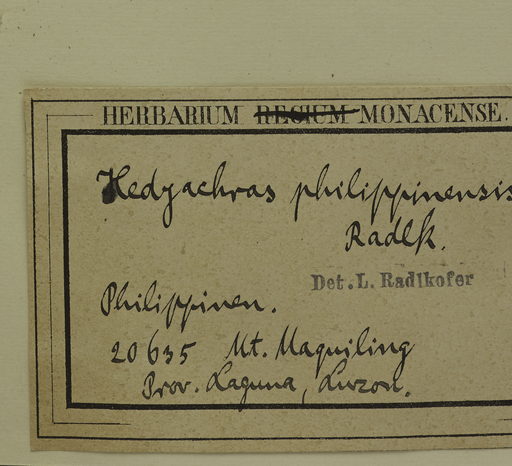 HERBARIUM REGIUM MONACENSE.
Hedyachras philippinensis
Radlk.
Det. L. Radlkofer
Philippinen.
20635 Mt. Maquiling
Prov. Laguna, Luzon.